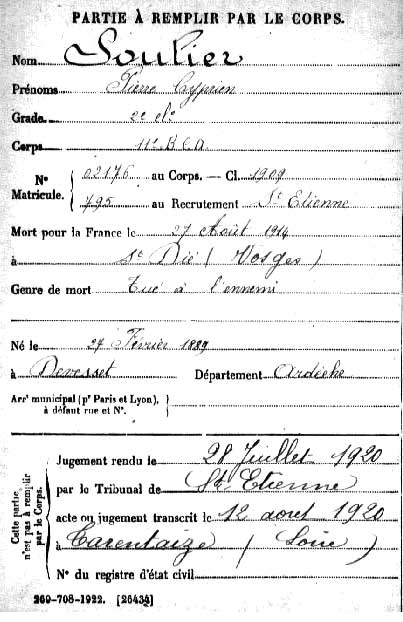 PARTIE À REMPLIR PAR LE CORPS.
Nom Soulier
Prénoms Pierre Cyprien
Grade 2e cl.
Corps 11e B C A
No Matricule. { 02176 au Corps. — Cl. 1909
795 au Recrutement St Etienne
Mort pour la France le 27 Août 1914
à St Dié (Vosges)
Genre de mort Tué à l'ennemi
Né le 27 Février 1889
à Devesset Département Ardèche
Arrt municipal (pr Paris et Lyon), à défaut rue et No. }
Cette partie n'est pas à remplir par le Corps.
Jugement rendu le 28 Juillet 1920
par le Tribunal de St Etienne
acte ou jugement transcrit le 12 aout 1920
à Tarentaize (Loire)
No du registre d'état civil
269-708-1922. [26434]